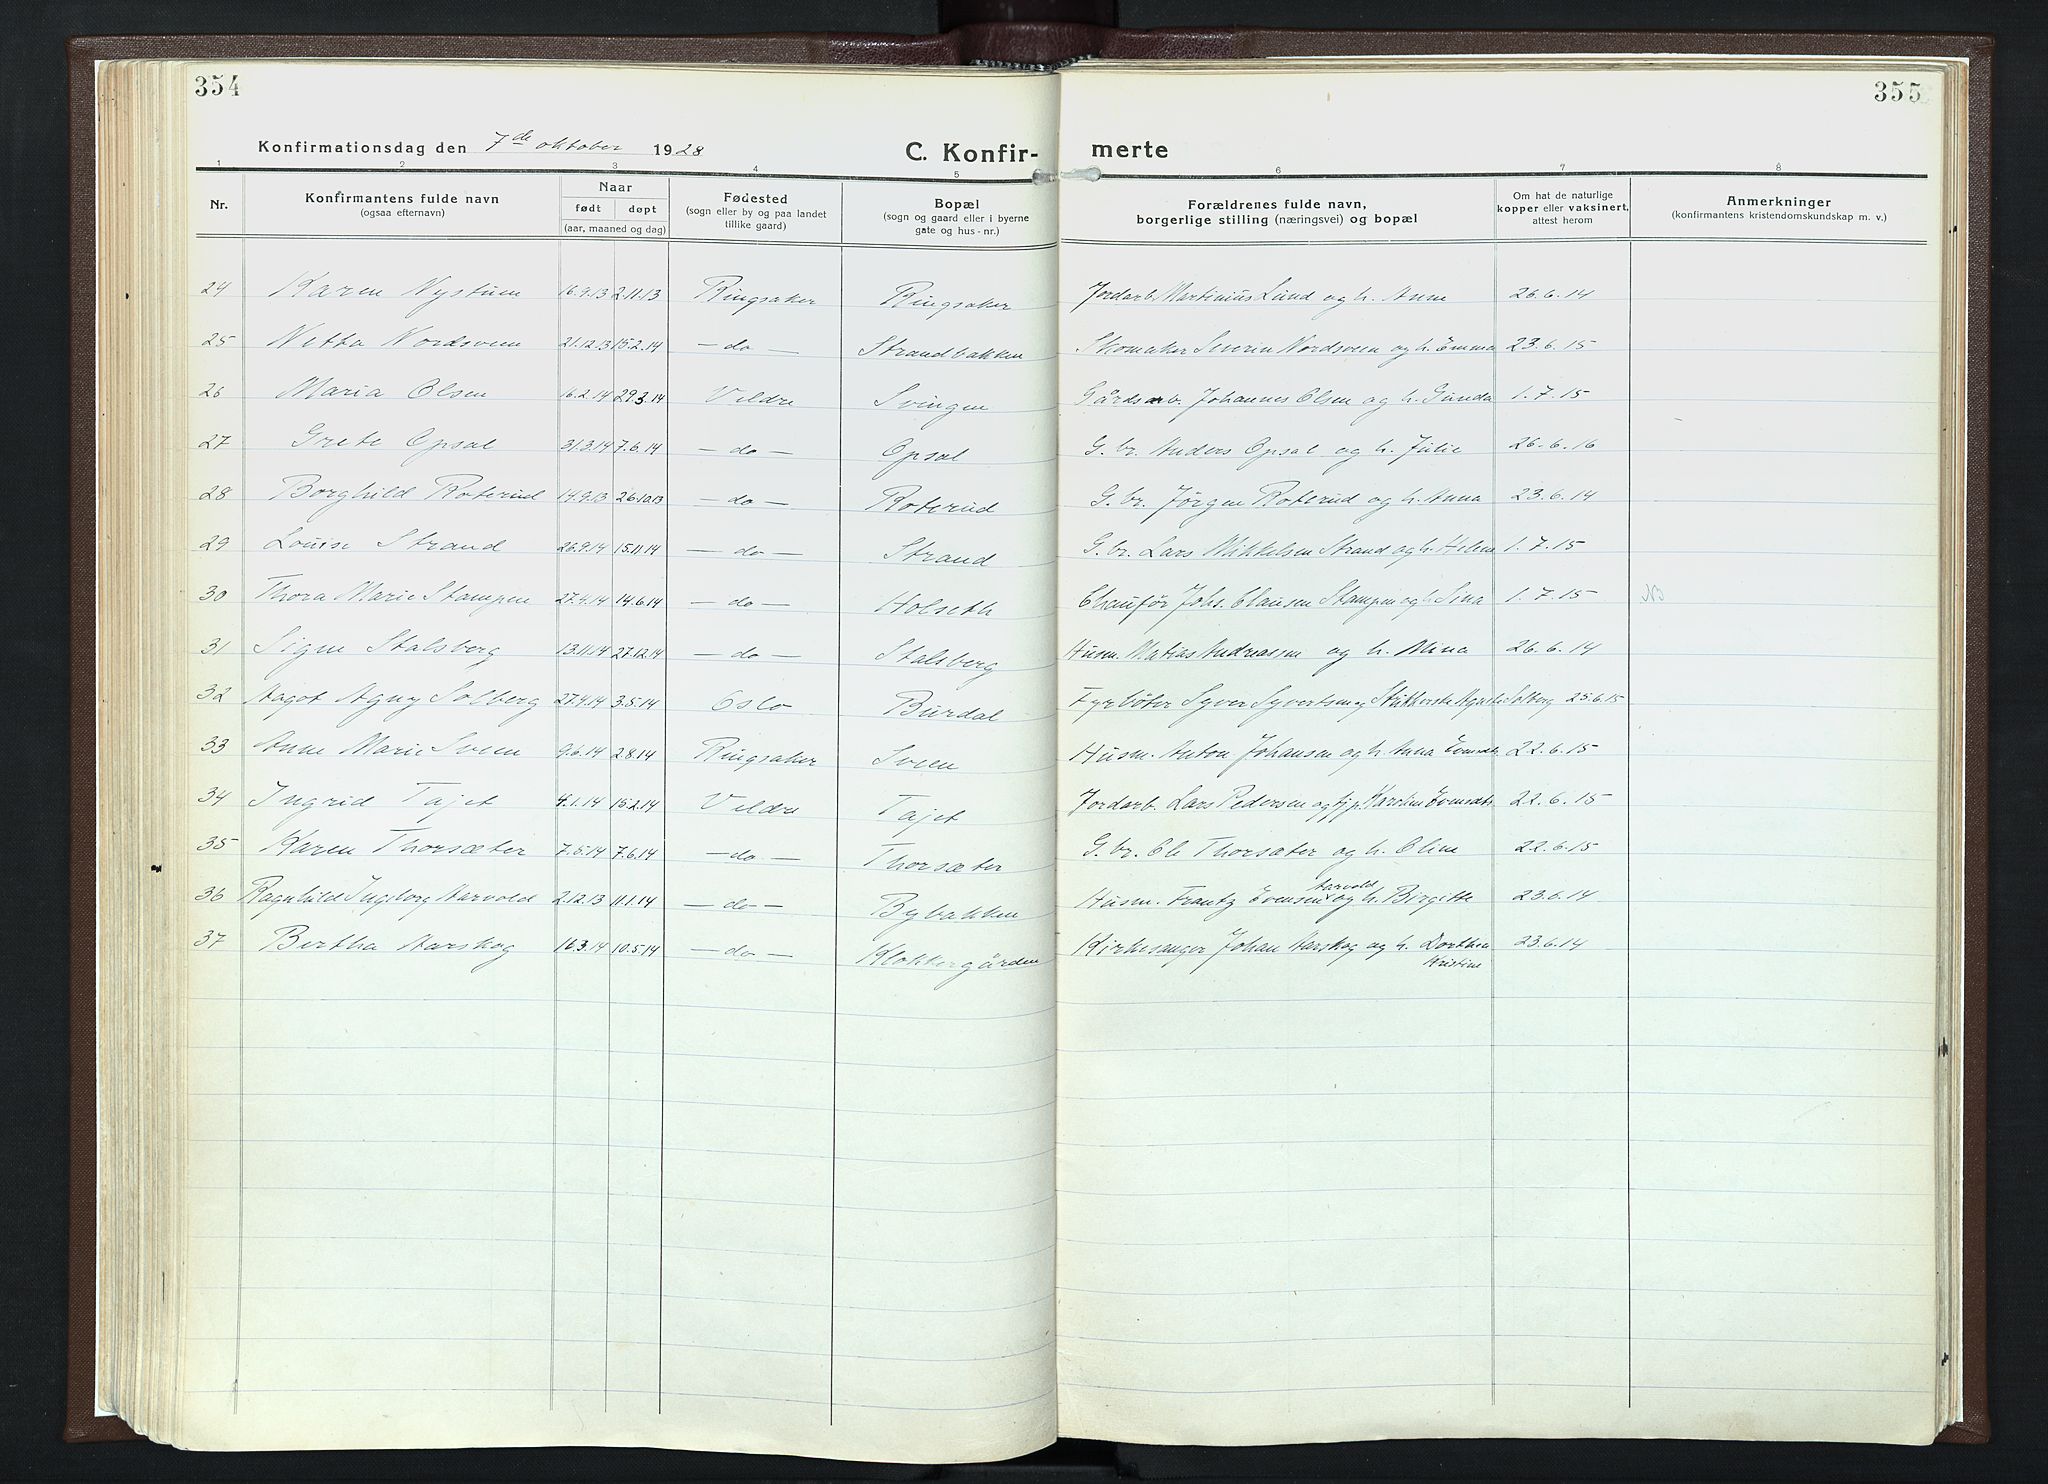 354
355
Konfirmationsdag den 7de oktober 1928
C. Konfir-
merte
1 2 3 4 5 6 7 8
Nr. Konfirmantens fulde navn (ogsaa efternavn) Naar født døpt (aar, maaned og dag) Fødested (sogn eller by og paa landet tillike gaard) Bopæl (sogn og gaard eller i byerne gate og hus-nr.) Forældrenes fulde navn, borgerlige stilling (næringsvei) og bopæl Om hat de naturlige kopper eller vaksinert, attest herom Anmerkninger (konfirmantens kristendomskundskap m. v.)
24 Karen Nystuen 16.9.13 2.11.13 Ringsaker Ringsaker Jordarb. Martinius Lund og h. Anne 26.6.14
25 Netta Nordsveen 21.12.13 15.2.14 - do - Strandbakken Skomaker Severin Nordsveen og h. Emma 23.6.15
26 Maria Olsen 16.2.14 29.3.14 Veldre Svingen Gårdsarb. Johannes Olsen og h. Gunda 1.7.15
27 Grete Opsal 31.3.14 7.6.14 - do - Opsal G.br. Anders Opsal og h. Julie 26.6.16
28 Borghild Roterud 14.9.13 26.10.13 - do - Roterud G.br. Jørgen Roterud og h. Anna 23.6.14
29 Louise Strand 26.9.14 15.11.14 - do - Strand G.br. Lars Mikkelsen Strand og h. Helene 1.7.15
30 Thora Marie Stampen 27.4.14 14.6.14 - do - Holseth Chaufør Johs. Clausen Stampen og h. Sina 1.7.15 NB
31 Signe Stalsberg 13.11.14 27.12.14 - do - Stalsberg Husm. Matias Andreassen og h. Mina 26.6.14
32 Aagot Agny Solberg 27.4.14 3.5.14 Oslo Burdal Fyrbøter Syver Syvertsen og Solberg 25.6.15
33 Anne Marie Sveen 9.6.14 2.8.14 Ringsaker Sveen Husm. Anton Johansen og h. Anna 22.6.15
34 Ingrid Tajet 4.1.14 15.2.14 Veldre Tajet Jordarb. Lars Pedersen og Karoline 22.6.15
35 Karen Thorsæter 7.5.14 7.6.14 - do - Thorsæter G.br. Ole Thorsæter og h. Oline 22.6.15
36 Ragnhild Ingeborg Aarvold 2.12.13 11.1.14 - do - Bybakken Husm. Frantz Evensen Aarvold og h. Birgitte 23.6.14
37 Bertha Aarskog 16.3.14 10.5.14 - do - Klokkergården Kirkesanger Johan Aarskog og h. Dorthea Kristine 23.6.14